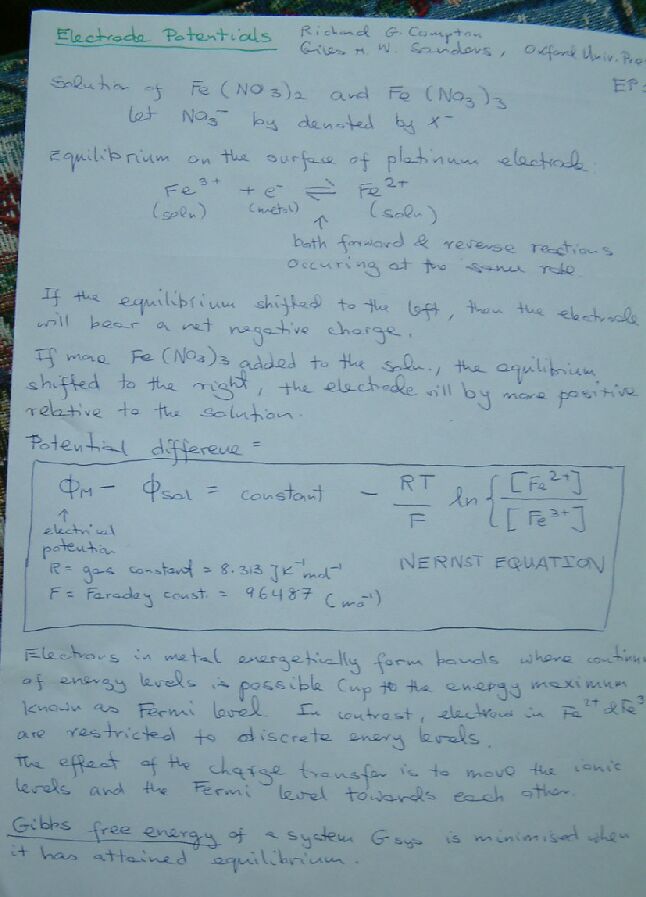 Electrode Potentials Richard G. Compton
Giles H. W. Sanders, Oxford Univ. Pre
EP
Solution of Fe(NO3)2 and Fe(NO3)3
let NO3⁻ by denoted by x⁻
Equilibrium on the surface of platinum electrode:
Fe³⁺ + e⁻ ⇌ Fe²⁺
(soln) (metal) (soln)
↑
both forward & reverse reactions
occuring at the same rate.
If the equilibrium shifted to the left, then the electrode
will bear a net negative charge.
If more Fe(NO3)3 added to the soln., the equilibrium
shifted to the right, the electrode will by more positive
relative to the solution.
Potential difference =
ΦM - Φsol = constant - RT/F ln {[Fe²⁺]/[Fe³⁺]}
↑
electrical
potention
R = gas constant = 8.313 JK⁻¹mol⁻¹ NERNST EQUATION
F = Faraday const. = 96487 C mol⁻¹
Electrons in metal energetically form bonds where continu
of energy levels is possible (up to the energy maximum
known as Fermi level. In contrast, electron in Fe²⁺ & Fe³
are restricted to discrete enery levels.
The effect of the charge transfer is to move the ionic
levels and the Fermi level towards each other.
Gibbs free energy of a system Gsys is minimised when
it has attained equilibrium.